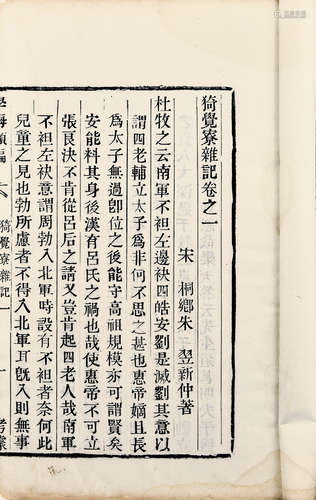 猗覺寮雜記卷之一
宋　桐鄉朱　翌新仲著
杜牧之云南軍不袒左邊袖四皓安劉是滅劉其意以
謂四老輔立太子爲非何不思之甚也惠帝嫡且長
爲太子無過卽位之後能守高祖規模亦可謂賢矣
安能料其身後漢有呂氏之禍也哉使惠帝不可立
張良決不肯從呂后之請又豈肯起四老人哉南軍
不袒左袂意謂周勃入北軍時設有不袒者奈何此
兒童之見也勃所慮者不得入北軍耳旣入則無事
學海類編
猗覺寮雜記
一